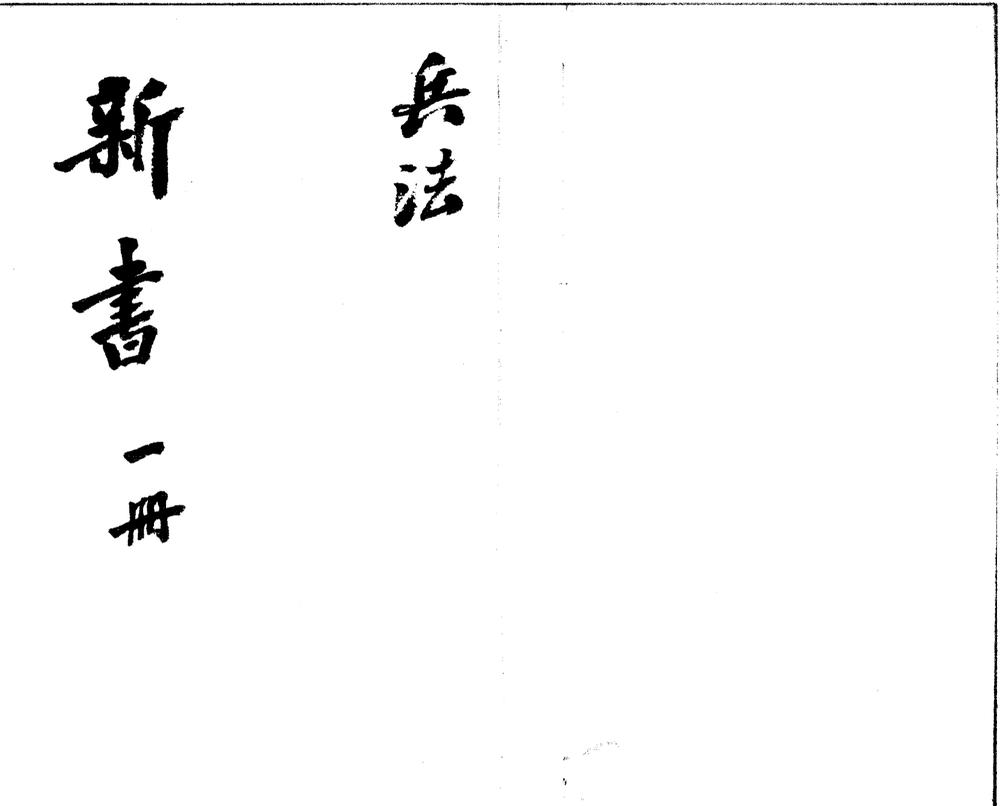 兵法
新書一冊